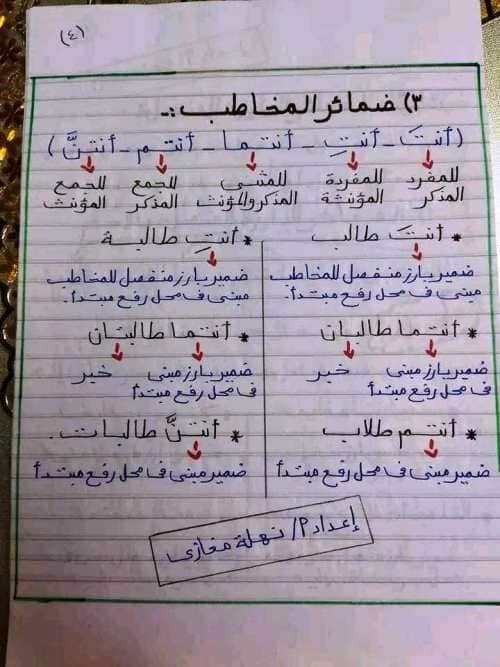 (٤)
٣) ضمائر المخاطب :-
(أنتَ - أنتِ - أنتما - أنتم - أنتنَّ)
للمفرد للمفردة للمثنى للجمع للجمع
المذكر المؤنثة المذكر والمؤنث المذكر المؤنث
* أنتَ طالب
ضمير بارز منفصل للمخاطب
مبنى فى محل رفع مبتدأ.
* أنتِ طالبة
ضمير بارز منفصل للمخاطب
مبنى فى محل رفع مبتدأ.
* أنتما طالبان
ضمير بارز مبنى خبر
فى محل رفع مبتدأ
* أنتما طالبتان
ضمير بارز مبنى خبر
فى محل رفع مبتدأ
* أنتم طلاب
ضمير مبنى فى محل رفع مبتدأ
* أنتنَّ طالبات.
ضمير مبنى فى محل رفع مبتدأ
إعداد م/ نهلة مغازى